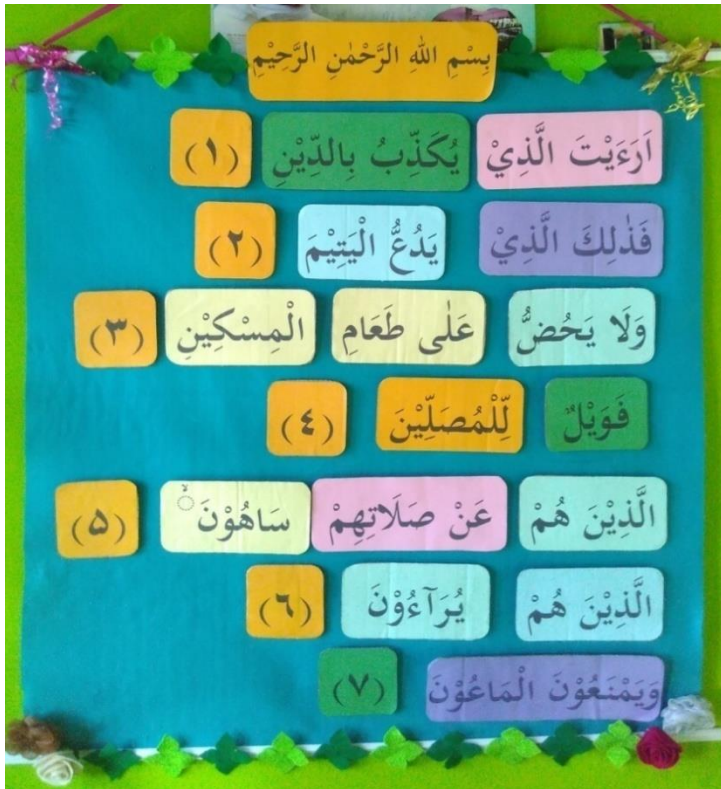 بِسْمِ اللهِ الرَّحْمٰنِ الرَّحِيْمِ
اَرَءَيْتَ الَّذِيْ يُكَذِّبُ بِالدِّيْنِ (١)
فَذٰلِكَ الَّذِيْ يَدُعُّ الْيَتِيْمَ (٢)
وَلَا يَحُضُّ عَلٰى طَعَامِ الْمِسْكِيْنِ (٣)
فَوَيْلٌ لِّلْمُصَلِّيْنَ (٤)
الَّذِيْنَ هُمْ عَنْ صَلَاتِهِمْ سَاهُوْنَ ۙ (۵)
الَّذِيْنَ هُمْ يُرَآءُوْنَ (٦)
وَيَمْنَعُوْنَ الْمَاعُوْنَ (٧)